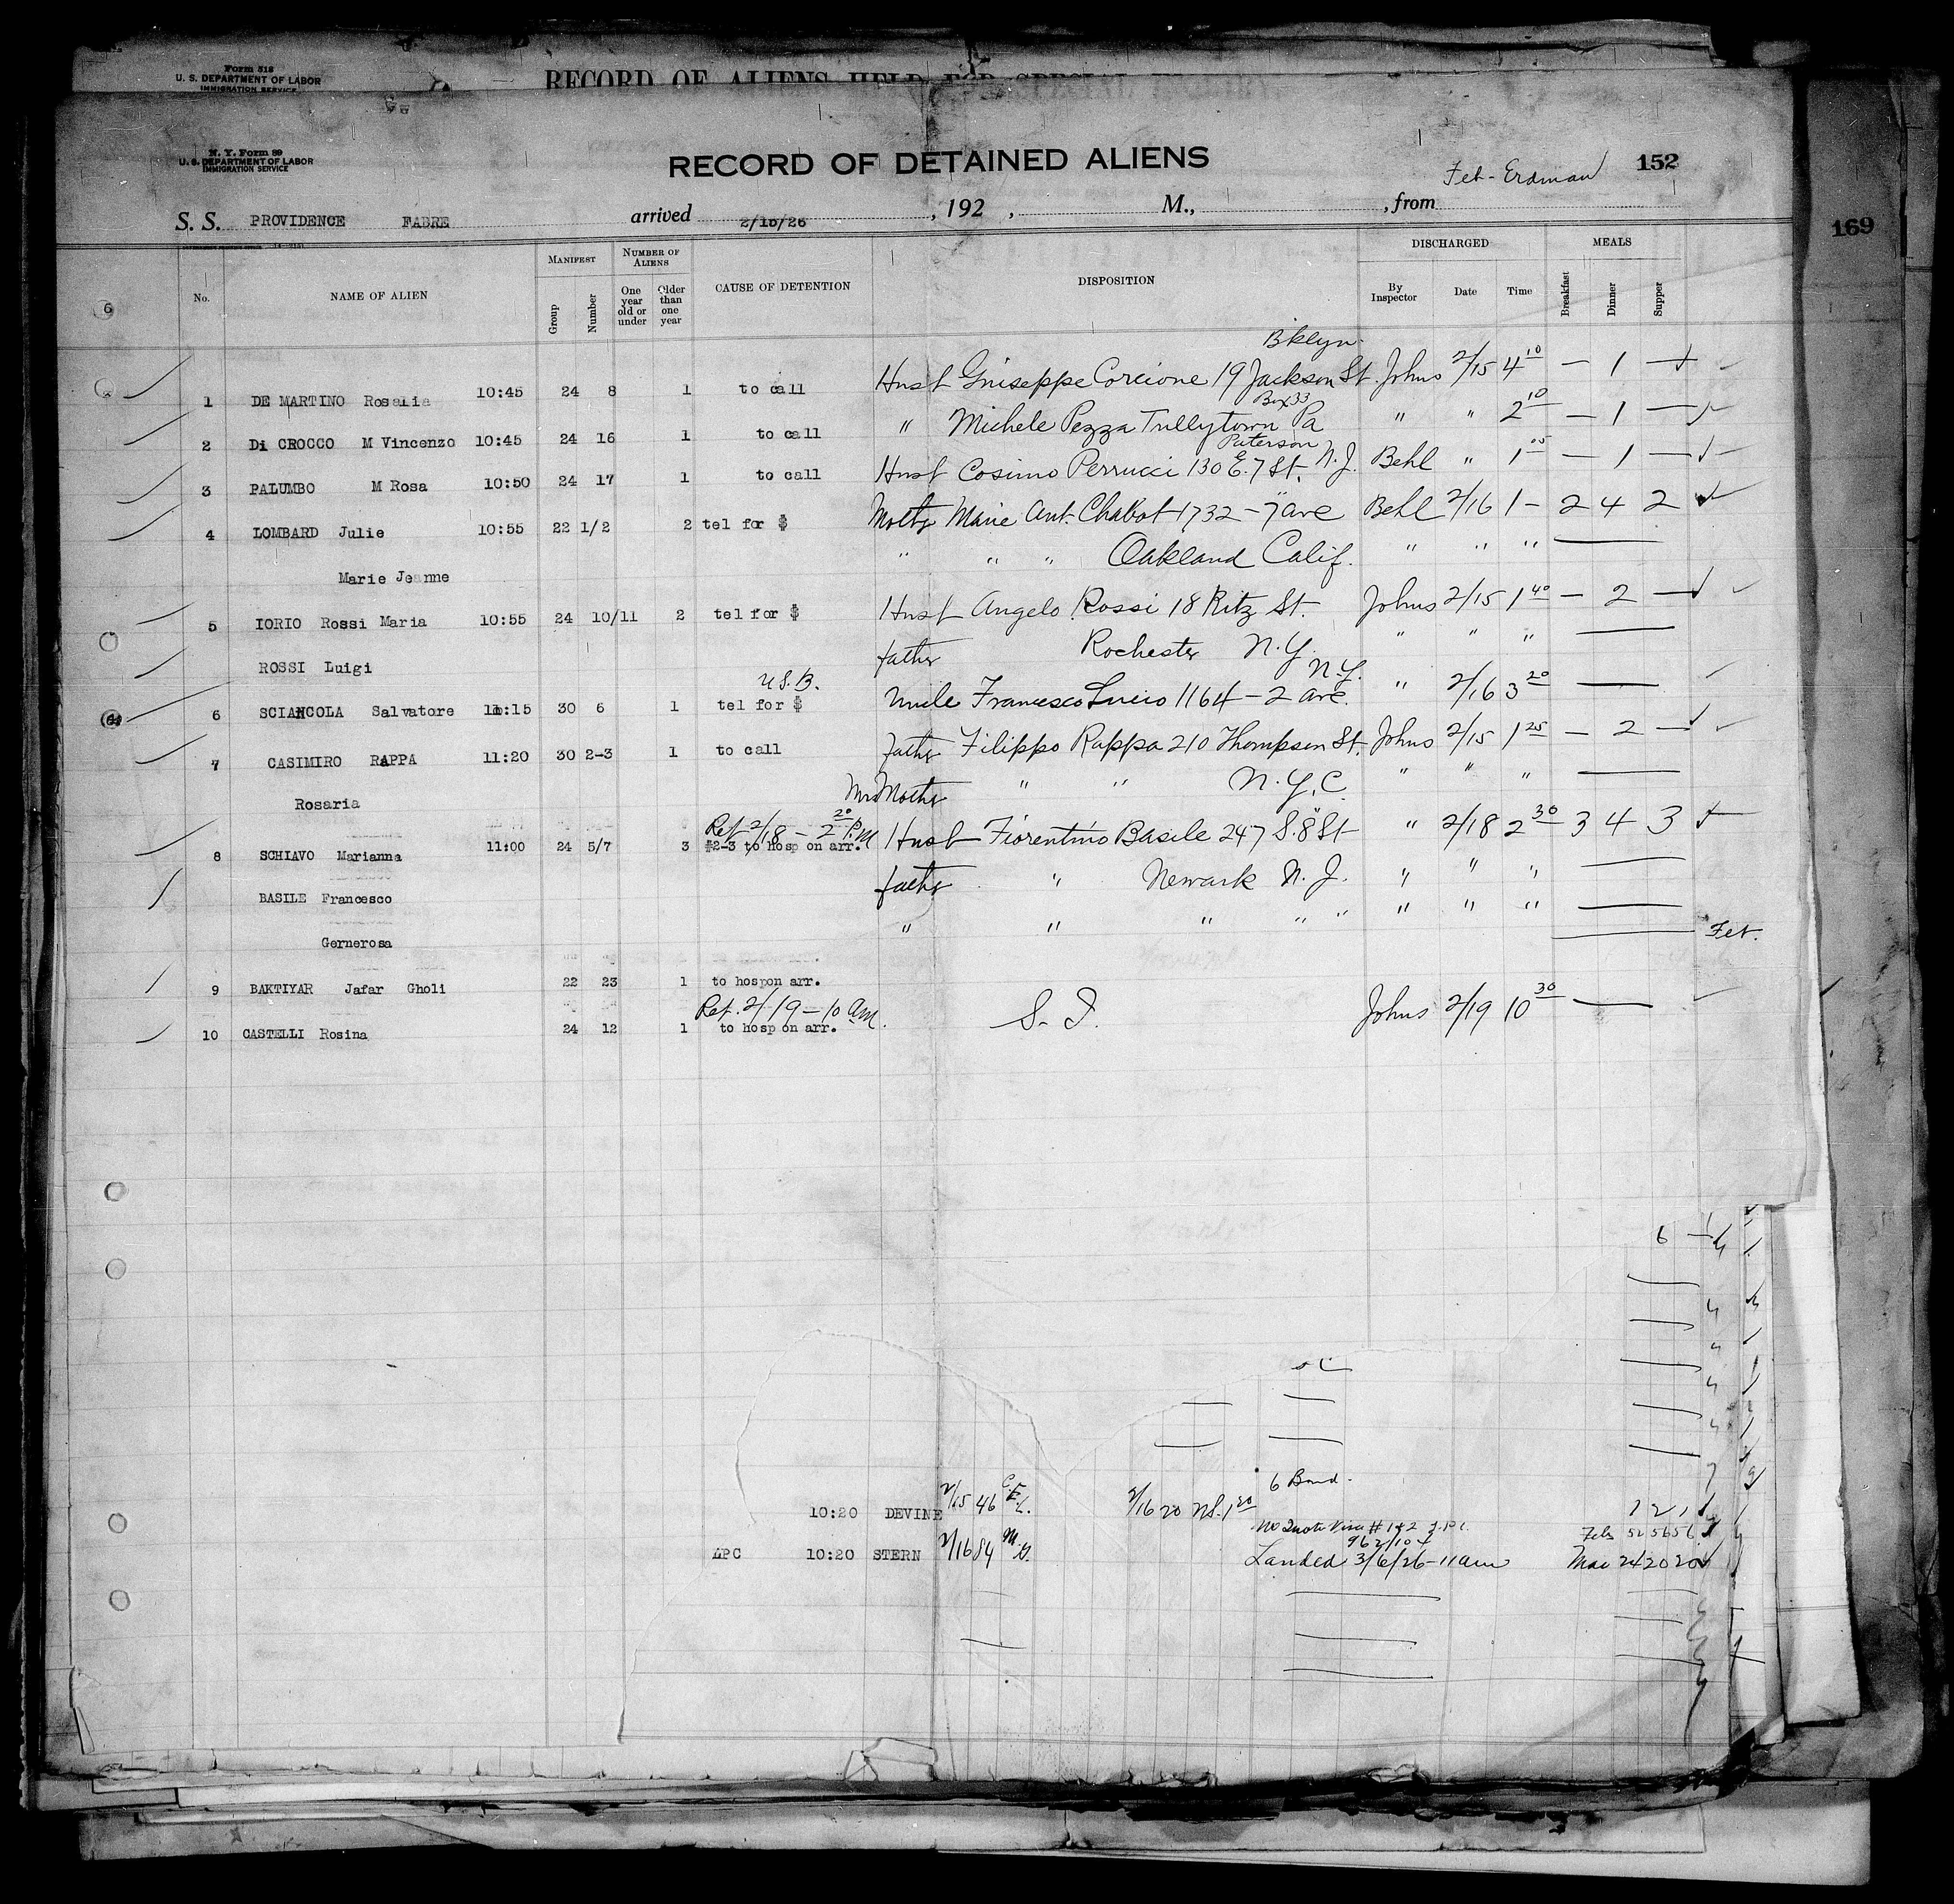 Form 518
U. S. DEPARTMENT OF LABOR
IMMIGRATION SERVICE
RECORD OF ALIENS HELD FOR SPECIAL INQUIRY
N. Y. Form 89
U. S. DEPARTMENT OF LABOR
IMMIGRATION SERVICE
RECORD OF DETAINED ALIENS
Fet-Erdman 152
S. S. PROVIDENCE FABRE arrived 2/15/26, 192 , M., , from
169
No. NAME OF ALIEN MANIFEST Group Number NUMBER OF ALIENS One year old or under Older than one year CAUSE OF DETENTION DISPOSITION DISCHARGED By Inspector Date Time MEALS Breakfast Dinner Supper
Bklyn.
1 DE MARTINO Rosalia 10:45 24 8 1 to call Husb Guiseppe Corcione 19 Jackson St. Johns 2/15 4 10 — 1 —
Box 33
2 Di CROCCO M Vincenzo 10:45 24 16 1 to call " Michele Pezza Tullytown Pa " " 2 10 — 1 —
Paterson
3 PALUMBO M Rosa 10:50 24 17 1 to call Husb Cosimo Perrucci 130 E. 7 St. N.J. Behl " 1 05 — 1 —
4 LOMBARD Julie 10:55 22 1/2 2 tel for $ Mother Marie Ant. Chabot 1732 - 7 ave Behl 2/16 1 - 2 4 2
Marie Jeanne " " " Oakland Calif. " " "
5 IORIO Rossi Maria 10:55 24 10/11 2 tel for $ Husb Angelo Rossi 18 Ritz St. Johns 2/15 1 40 — 2 —
ROSSI Luigi father Rochester N.Y. " " "
U.S.B. N.Y.
6 SCIANCOLA Salvatore 11:15 30 6 1 tel for $ Uncle Francesco Lucio 1164 - 2 ave. " 2/16 3 20
7 CASIMIRO RAPPA 11:20 30 2-3 1 to call father Filippo Rappa 210 Thompson St. Johns 2/15 1 25 — 2 —
Rosaria Mother " " N.Y.C. " " "
Ret 2/18 - 2 20 P.M
8 SCHIAVO Marianna 11:00 24 5/7 3 #2-3 to hosp on arr. Husb Fiorentino Basile 247 S. 8 St " 2/18 2 30 3 4 3
BASILE Francesco father " Newark N.J. " " "
Gernerosa " " " " " " " "
Fet.
9 BAKTIYAR Jafar Gholi 22 23 1 to hospon arr.
Ret. 2/19 - 10 am.
10 CASTELLI Rosina 24 12 1 to hosp on arr. S. I. Johns 2/19 10 30
6
6 Bond.
10:20 DEVINE 2/15 46 2/16 20 1 2 1
Feb 52 56 56
962/104
LPC 10:20 STERN 2/16 84 Landed 3/6/26 - 11 am Mar 24 20 20